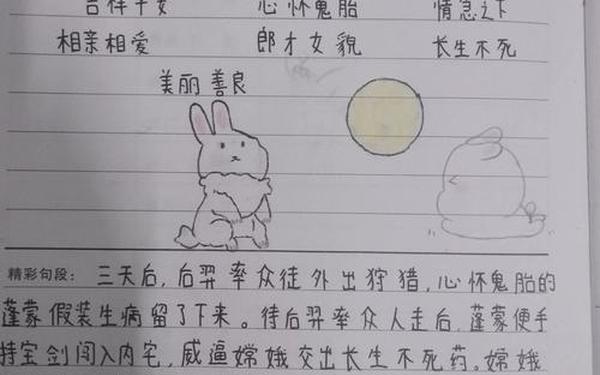 吉祥平安 心怀鬼胎 情急之下
相亲相爱 郎才女貌 长生不死
美丽善良
精彩句段: 三天后,后羿率众徒外出狩猎,心怀鬼胎的
蓬蒙假装生病留了下来。待后羿率众人走后,蓬蒙便手
持宝剑闯入内宅,威逼嫦娥交出长生不死药。嫦娥